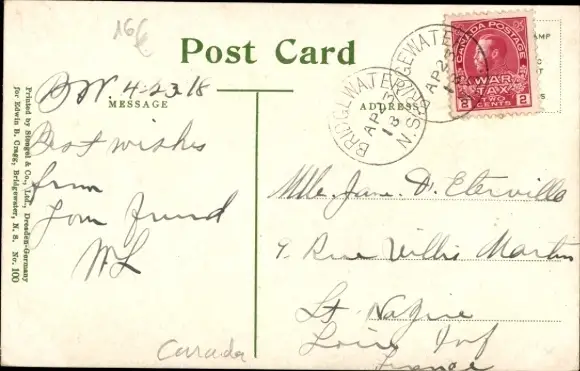 16€
Post Card
BW 4-23-18
MESSAGE
ADDRESS
Best wishes
from
your friend
WL
Mlle. Jane. D. Eterville
9. Rue Villis Martin
St. Nazire
Loire Inf
France
Canada
BRIDGEWATER
AP 23
18
N.S.
BRIDGEWATER
AP 23
N.S.
CANADA POSTAGE
WAR
TAX
TWO
CENTS
2
2
Printed by Stengel & Co., Ltd., Dresden-Germany
for Edwin B. Cragg, Bridgewater, N. S. Nr. 100